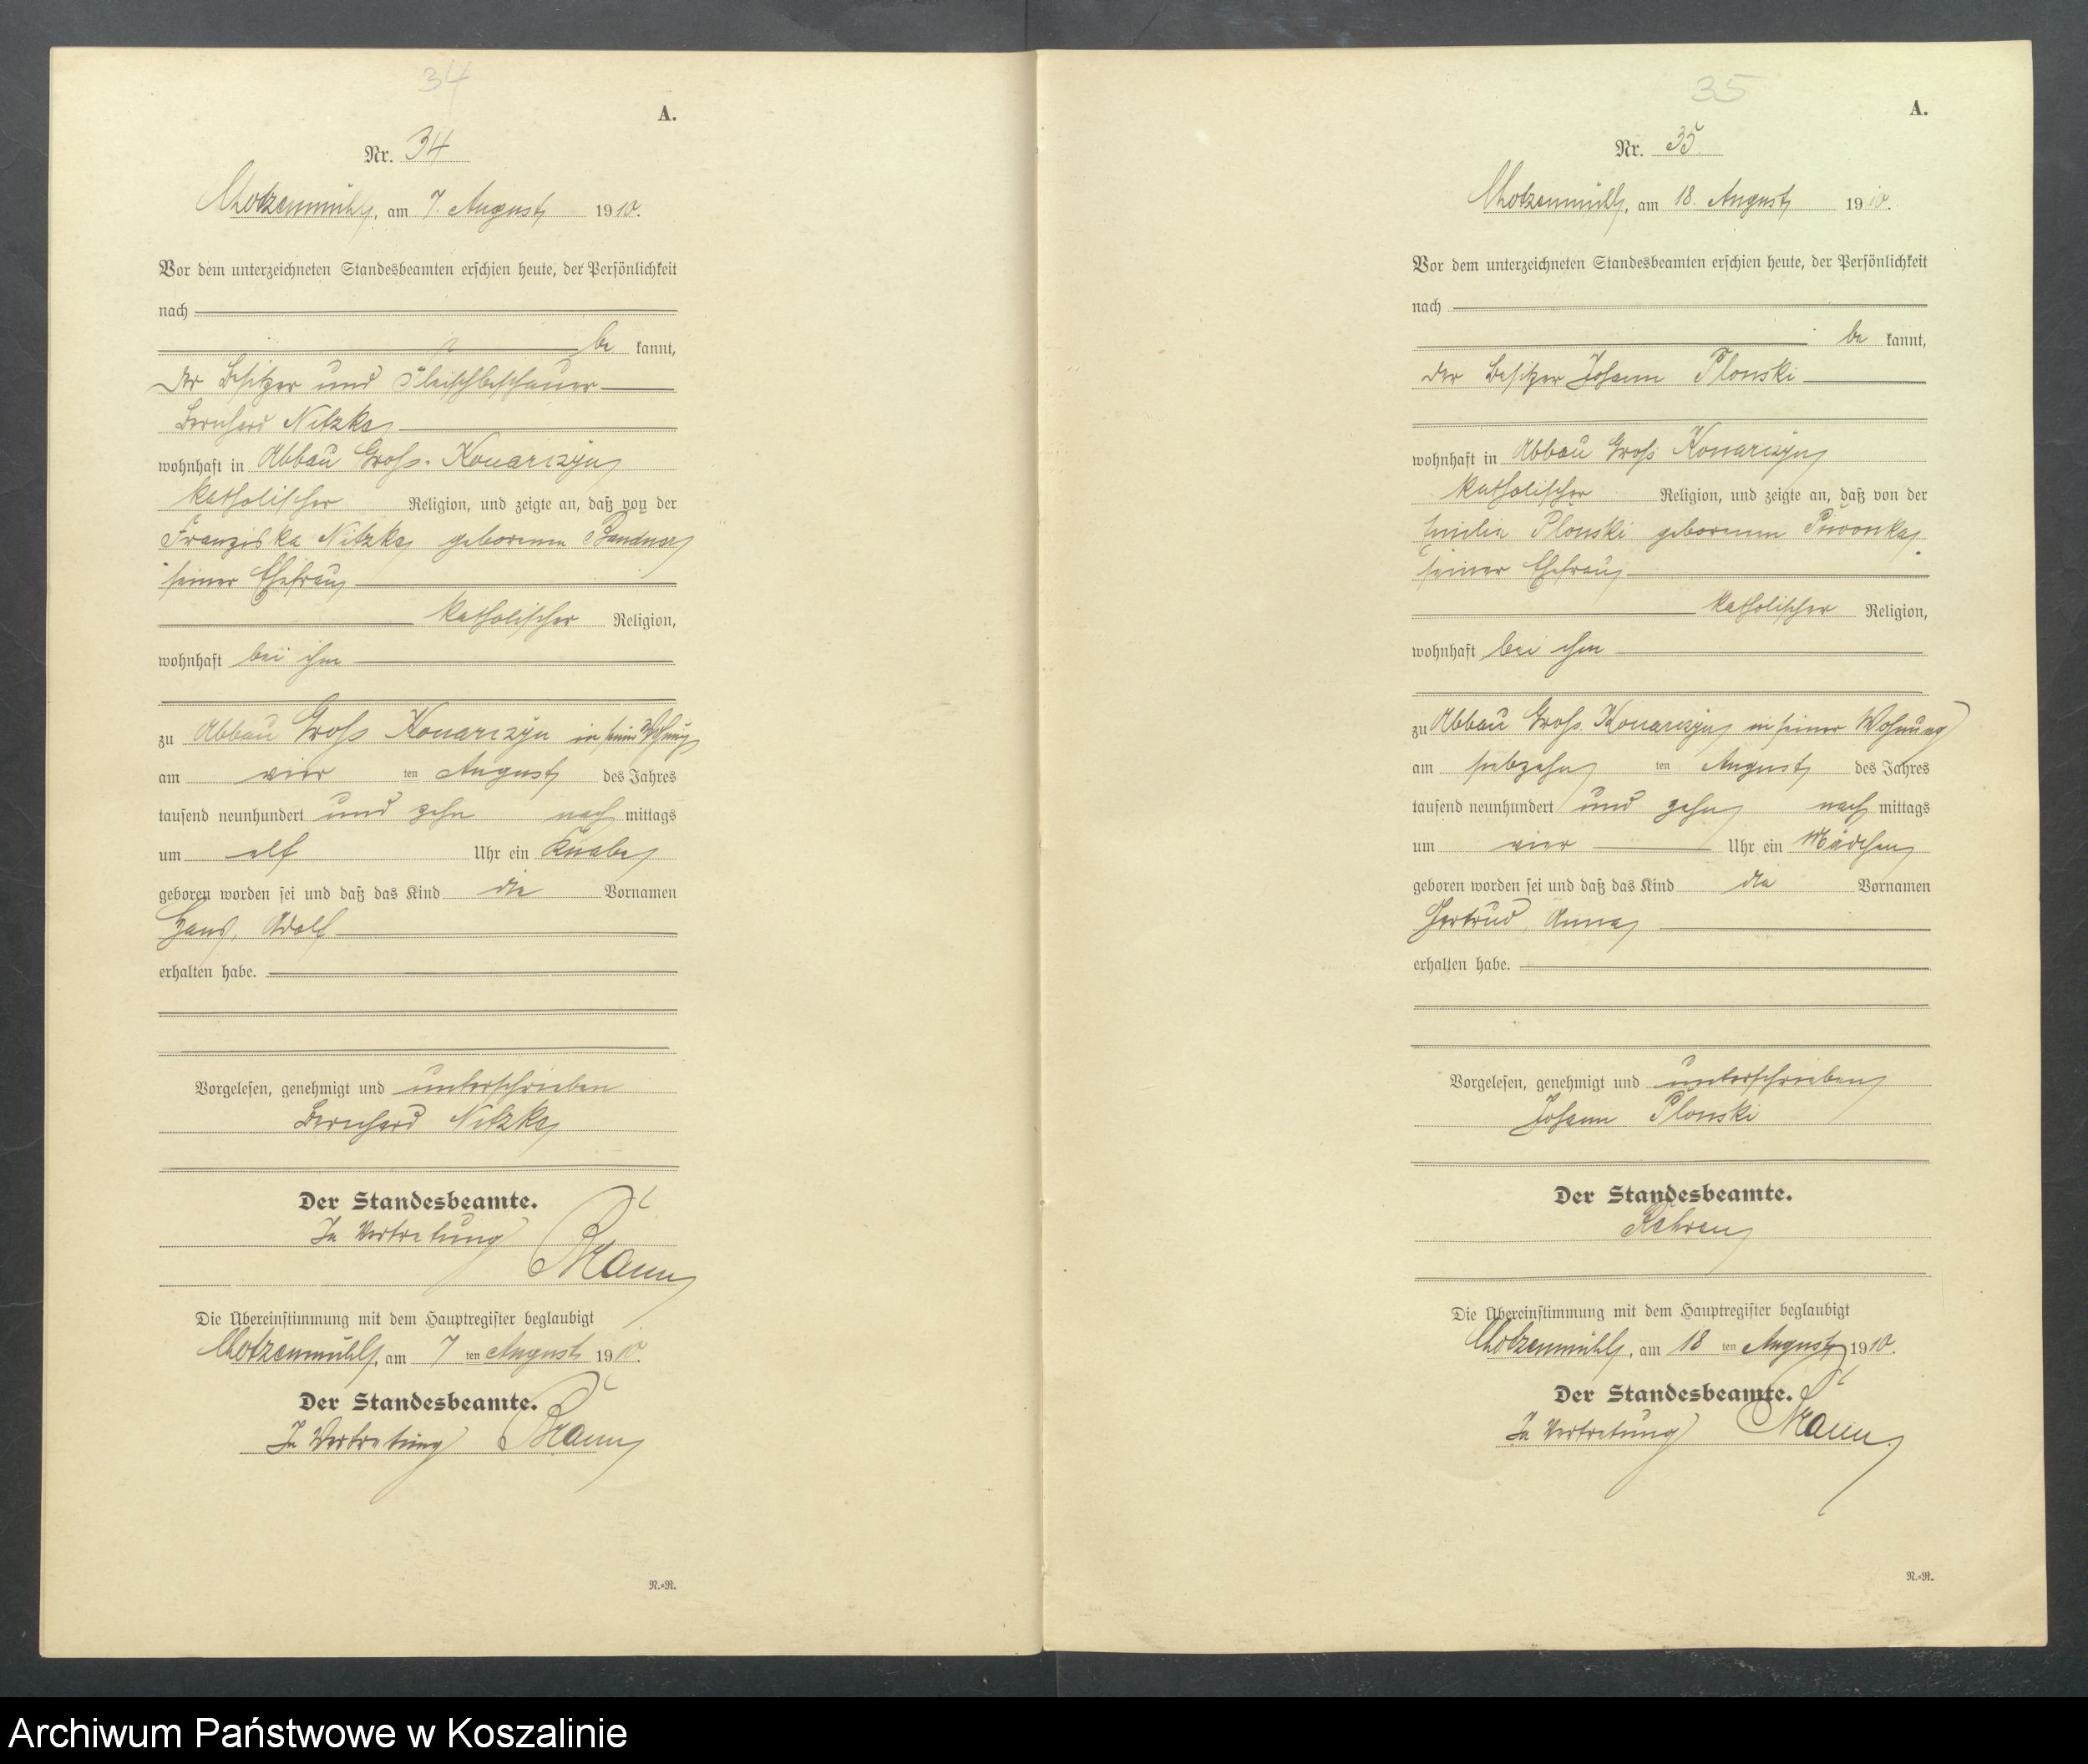 34
A.
Nr. 34
Chotzenmühl, am 7. August 1910.
Vor dem unterzeichneten Standesbeamten erschien heute, der Persönlichkeit
nach
be kannt,
der Besitzer und Fleischbeschauer
Bernhard Nitzka
wohnhaft in Abbau Groß-Konarczyn
katholischer Religion, und zeigte an, daß von der
Franziska Nitzka geborenen
seiner Ehefrau
katholischer Religion,
wohnhaft bei ihm
zu Abbau Groß Konarczyn in seiner Wohnung
am vier ten August des Jahres
tausend neunhundert und zehn nach mittags
um elf Uhr ein Knabe
geboren worden sei und daß das Kind die Vornamen
Hans, Adolf
erhalten habe.
Vorgelesen, genehmigt und unterschrieben
Bernhard Nitzka
Der Standesbeamte.
In Vertretung
Die Übereinstimmung mit dem Hauptregister beglaubigt
Chotzenmühl, am 7 ten August 1910.
Der Standesbeamte.
In Vertretung
N.=R.
35
A.
Nr. 35.
Chotzenmühl, am 18. August 1910.
Vor dem unterzeichneten Standesbeamten erschien heute, der Persönlichkeit
nach
be kannt,
der Besitzer Johann Plonski
wohnhaft in Abbau Groß Konarczyn
katholischer Religion, und zeigte an, daß von der
Emilie Plonski geborenen Piwonka,
seiner Ehefrau
katholischer Religion,
wohnhaft bei ihm
zu Abbau Groß Konarczyn in seiner Wohnung
am siebzehn ten August des Jahres
tausend neunhundert und zehn nach mittags
um vier Uhr ein Mädchen
geboren worden sei und daß das Kind die Vornamen
Gertrud, Anna
erhalten habe.
Vorgelesen, genehmigt und unterschrieben
Johann Plonski
Der Standesbeamte.
Die Übereinstimmung mit dem Hauptregister beglaubigt
Chotzenmühl, am 18 ten August 1910.
Der Standesbeamte.
In Vertretung
N.=R.
Archiwum Państwowe w Koszalinie